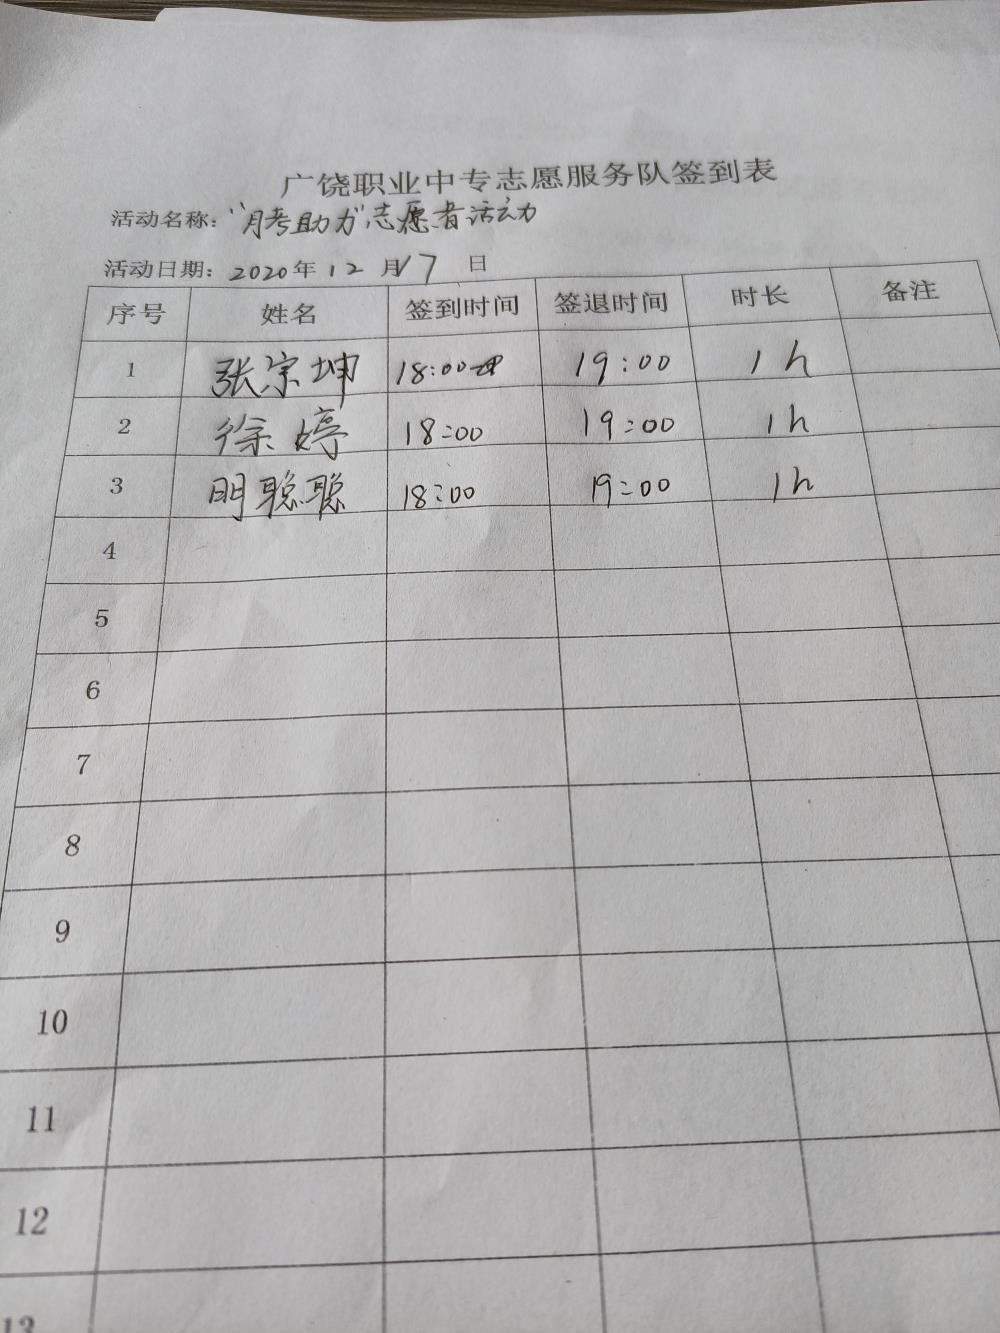 广饶职业中专志愿服务队签到表
活动名称："月考助力"志愿者活动
活动日期：2020年12月17日
序号 姓名 签到时间 签退时间 时长 备注
1 张宗坤 18:00 19:00 1h
2 徐婷 18:00 19:00 1h
3 明聪聪 18:00 19:00 1h
4
5
6
7
8
9
10
11
12
13